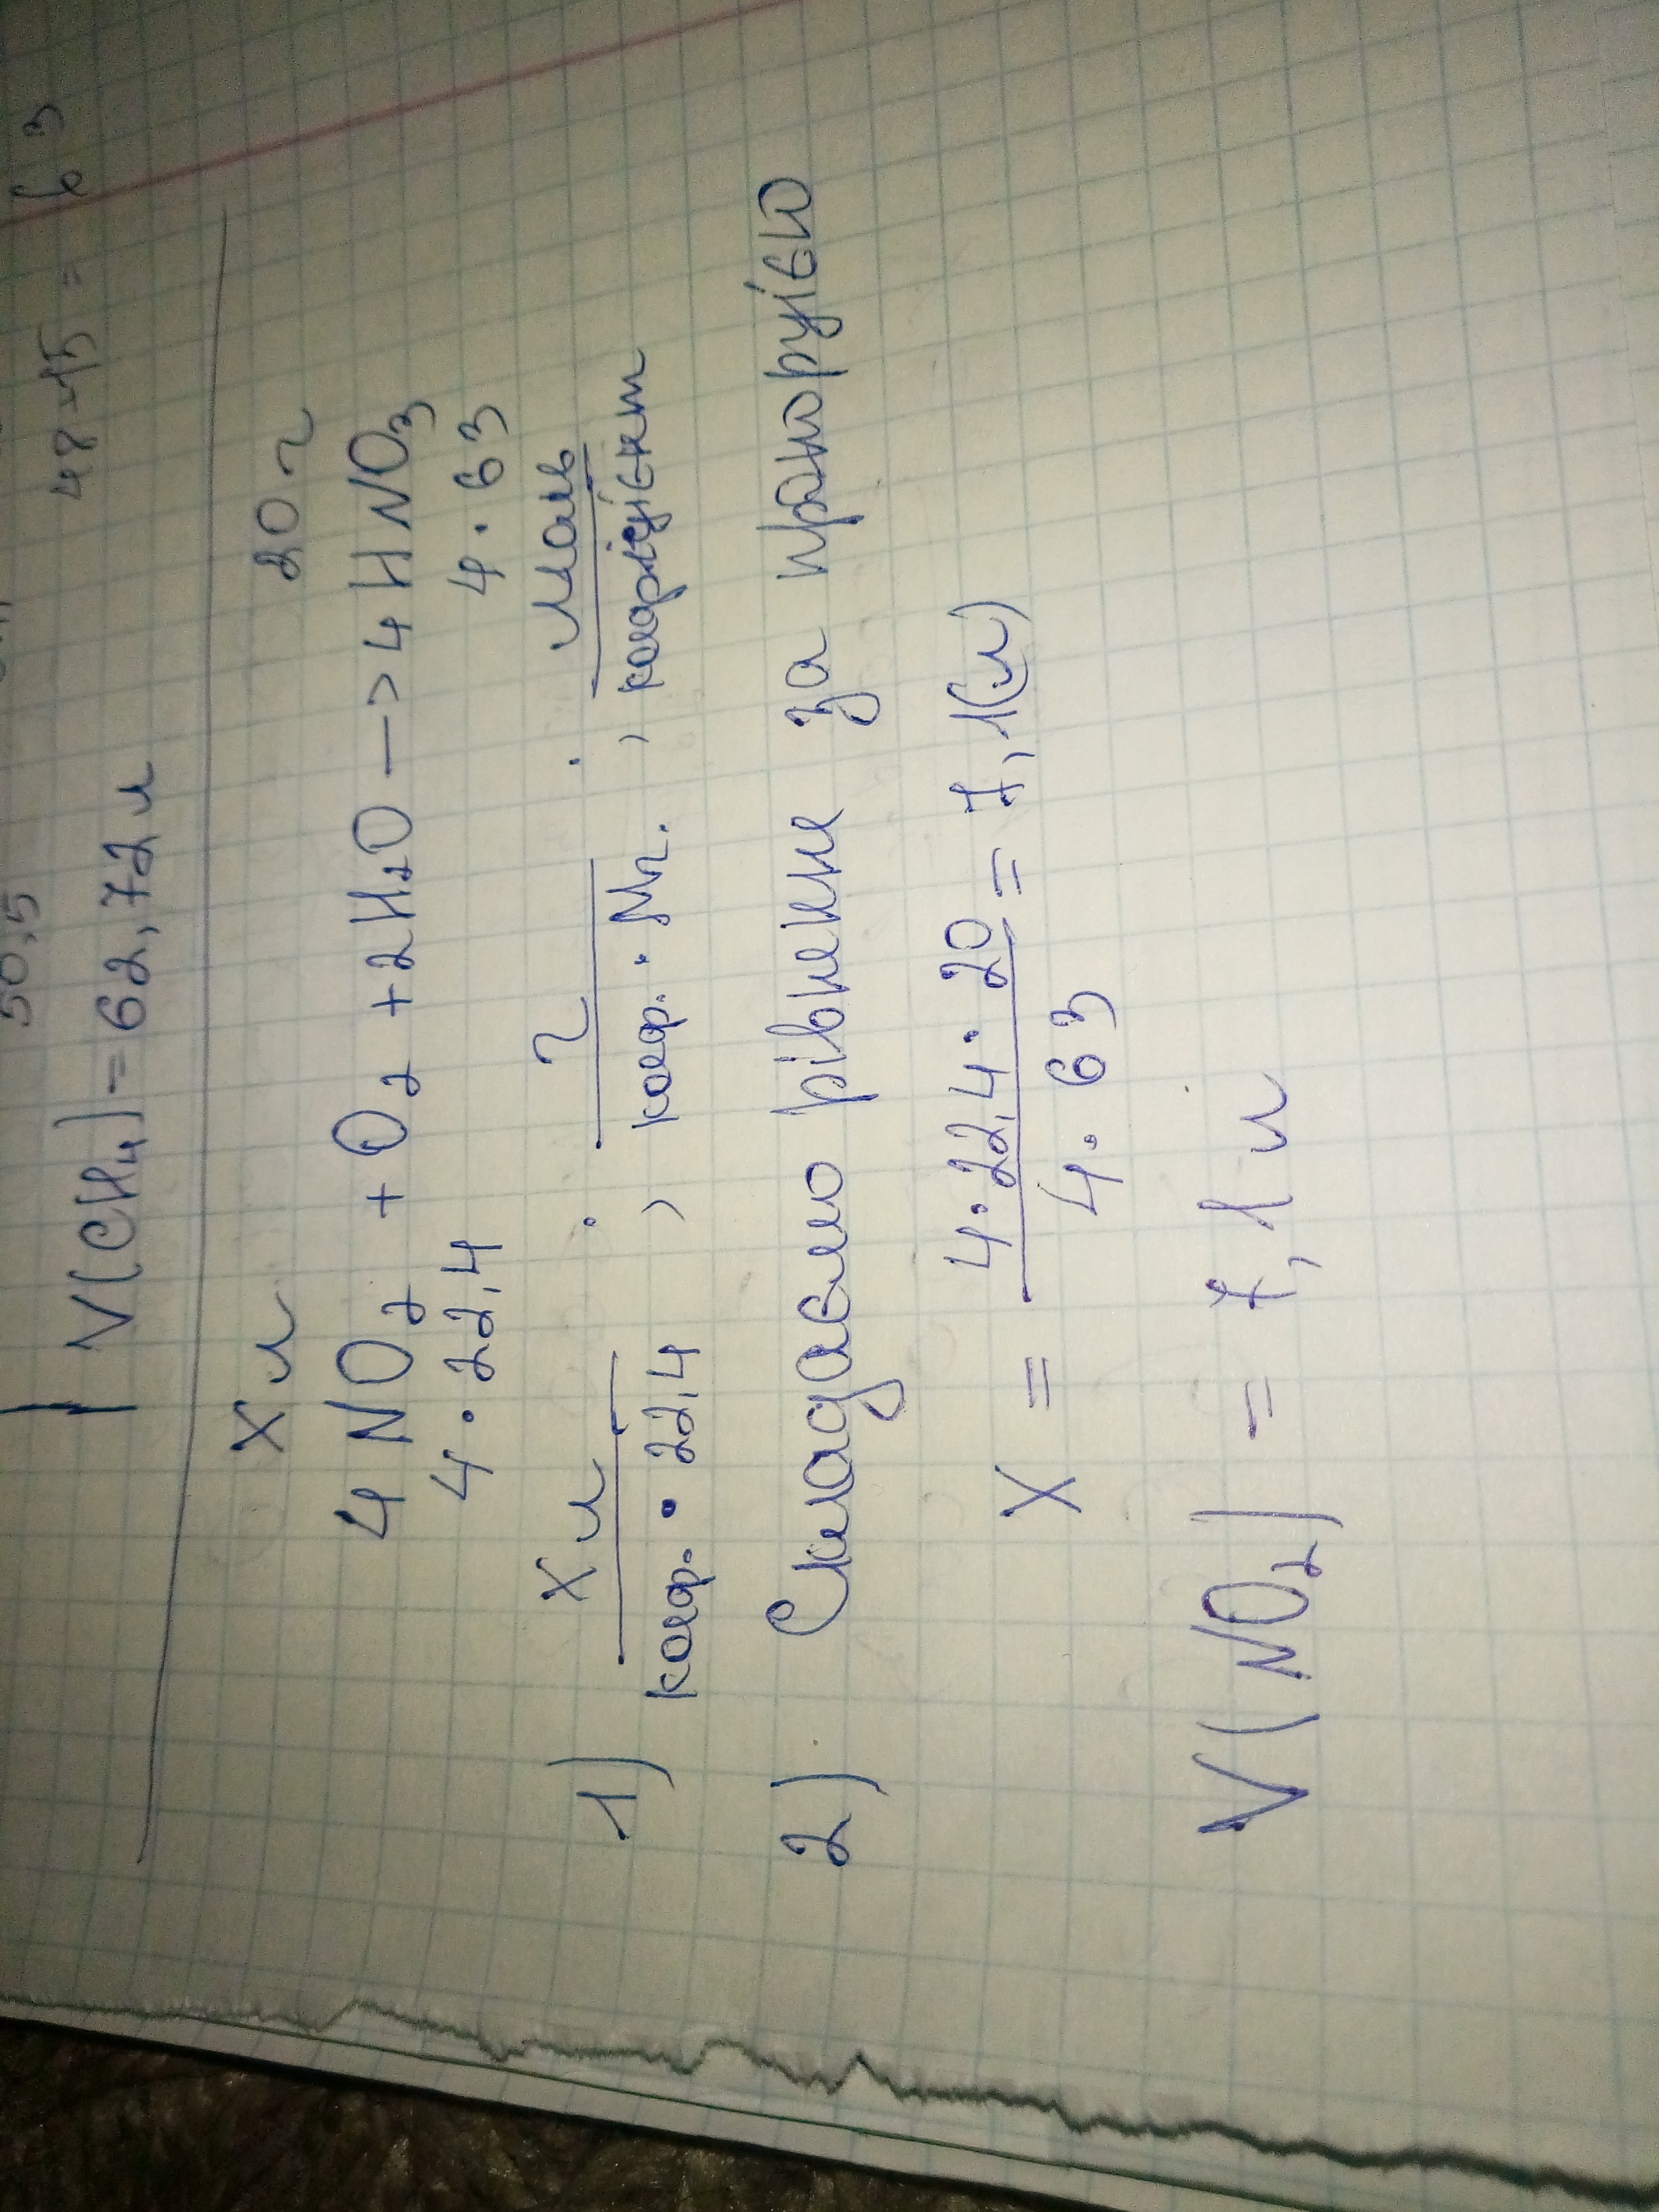 50,5
48 + 15 = 63
V(CH₄) = 62,72 л
X л 20 г
4 NO₂ + O₂ + 2H₂O —> 4 HNO₃
4 · 22,4 4 · 63
1) X л / коеф. · 22,4 ; г / коеф. · Mr. ; моль / коефіцієнт
2) Складаємо рівненн за пропорцією
X = 4 · 22,4 · 20 / 4 · 63 = 7,1(л)
V(NO₂) = 7,1 л